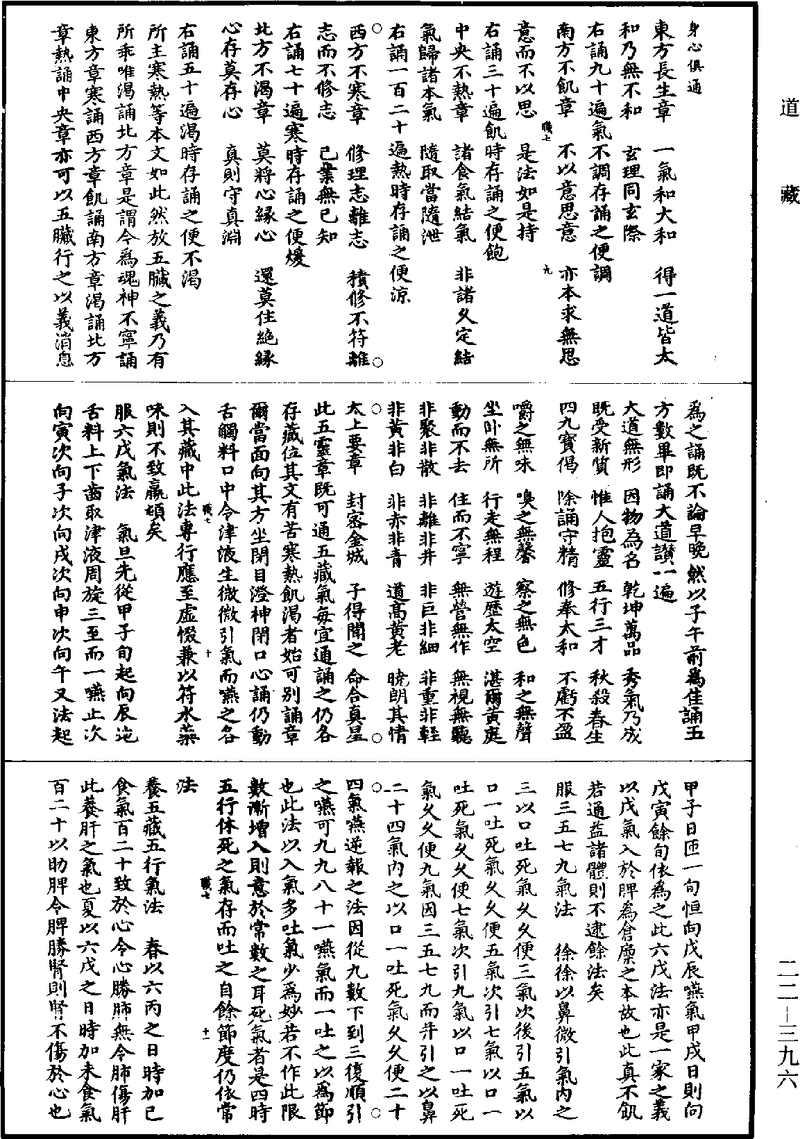 道藏
身心俱通
東方長生章　一氣和大和　得一道皆太
和乃無不和　玄理同玄際
右誦九十遍氣不調存誦之便調
南方不飢章　不以意思意　亦本求無思
意而不以思　是法如是持
職七　九
右誦三十遍飢時存誦之便飽
中央不熱章　諸食氣結氣　非諸久定結
氣歸諸本氣　隨取當隨泄
右誦一百二十遍熱時存誦之便涼
西方不寒章　修理志離志　積修不符離
志而不修志　己業無已知
右誦七十遍寒時存誦之便煖
北方不渴章　莫將心緣心　還莫住絕緣
心存莫存心　真則守真淵
右誦五十遍渴時存誦之便不渴
所主寒熱等本文如此然放五臟之義乃有
所乖唯渴誦北方章是謂令為魂神不寧誦
東方章寒誦西方章飢誦南方章渴誦北方
章熱誦中央章亦可以五臟行之以義消息
為之誦既不論早晚然以子午前為佳誦五
方數畢即誦大道讚一遍
大道無形　因物為名　乾坤萬品　秀氣乃成
既受新質　惟人抱靈　五行三才　秋殺春生
四九寶偈　除誦守精　修奉太和　不虧不盈
嚼之無味　嗅之無馨　察之無色　和之無聲
坐卧無所　行走無程　遊歷太空　湛爾黃庭
動而不去　住而不寧　無營無作　無視無聽
非聚非散　非離非并　非巨非細　非重非輕
非黃非白　非赤非青　道高黃老　曉朗其情
太上要章　封密金城　子得聞之　命合真星
此五靈章既可通五藏氣每宜通誦之仍各
存藏位其文有苦寒熱飢渴者始可別誦章
爾當面向其方坐閉目澄神閉口心誦仍動
舌觸料口中令津液生微微引氣而嚥之各
入其藏中此法專行應至虛惙兼以符水藥
職七　十
味則不致羸頓矣
服六戊氣法　氣旦先從甲子旬起向辰迄
舌料上下齒取津液周旋三至而一嚥止次
向寅次向子次向戌次向申次向午又法起
甲子日匝一旬恒向戊辰嚥氣甲戌日則向
戊寅餘旬依為之此六戊法亦是一家之義
以戊氣入於脾為倉廩之本故也此真不飢
若通益諸體則不逮餘法矣
服三五七九氣法　徐徐以鼻微引氣內之
三以口吐死氣久久便三氣次後引五氣以
口一吐死氣久久便五氣次引七氣以口一
吐死氣久久便七氣次引九氣以口一吐死
氣久久便九氣因三五七九而并引之以鼻
二十四氣內之以口一吐死氣久久便二十
四氣嚥逆報之法因從九數下到三復順引
之嚥可九九八十一嚥氣而一吐之以為節
也此法以入氣多吐氣少為妙若不作此限
數漸增入則意於常數之耳死氣者是四時
五行休死之氣存而吐之自餘節度仍依常
職七　十一
法
養五藏五行氣法　春以六丙之日時加巳
食氣百二十致於心令心勝肺無令肺傷肝
此養肝之氣也夏以六戊之日時加未食氣
百二十以助脾令脾勝腎則腎不傷於心也
二二－三九六